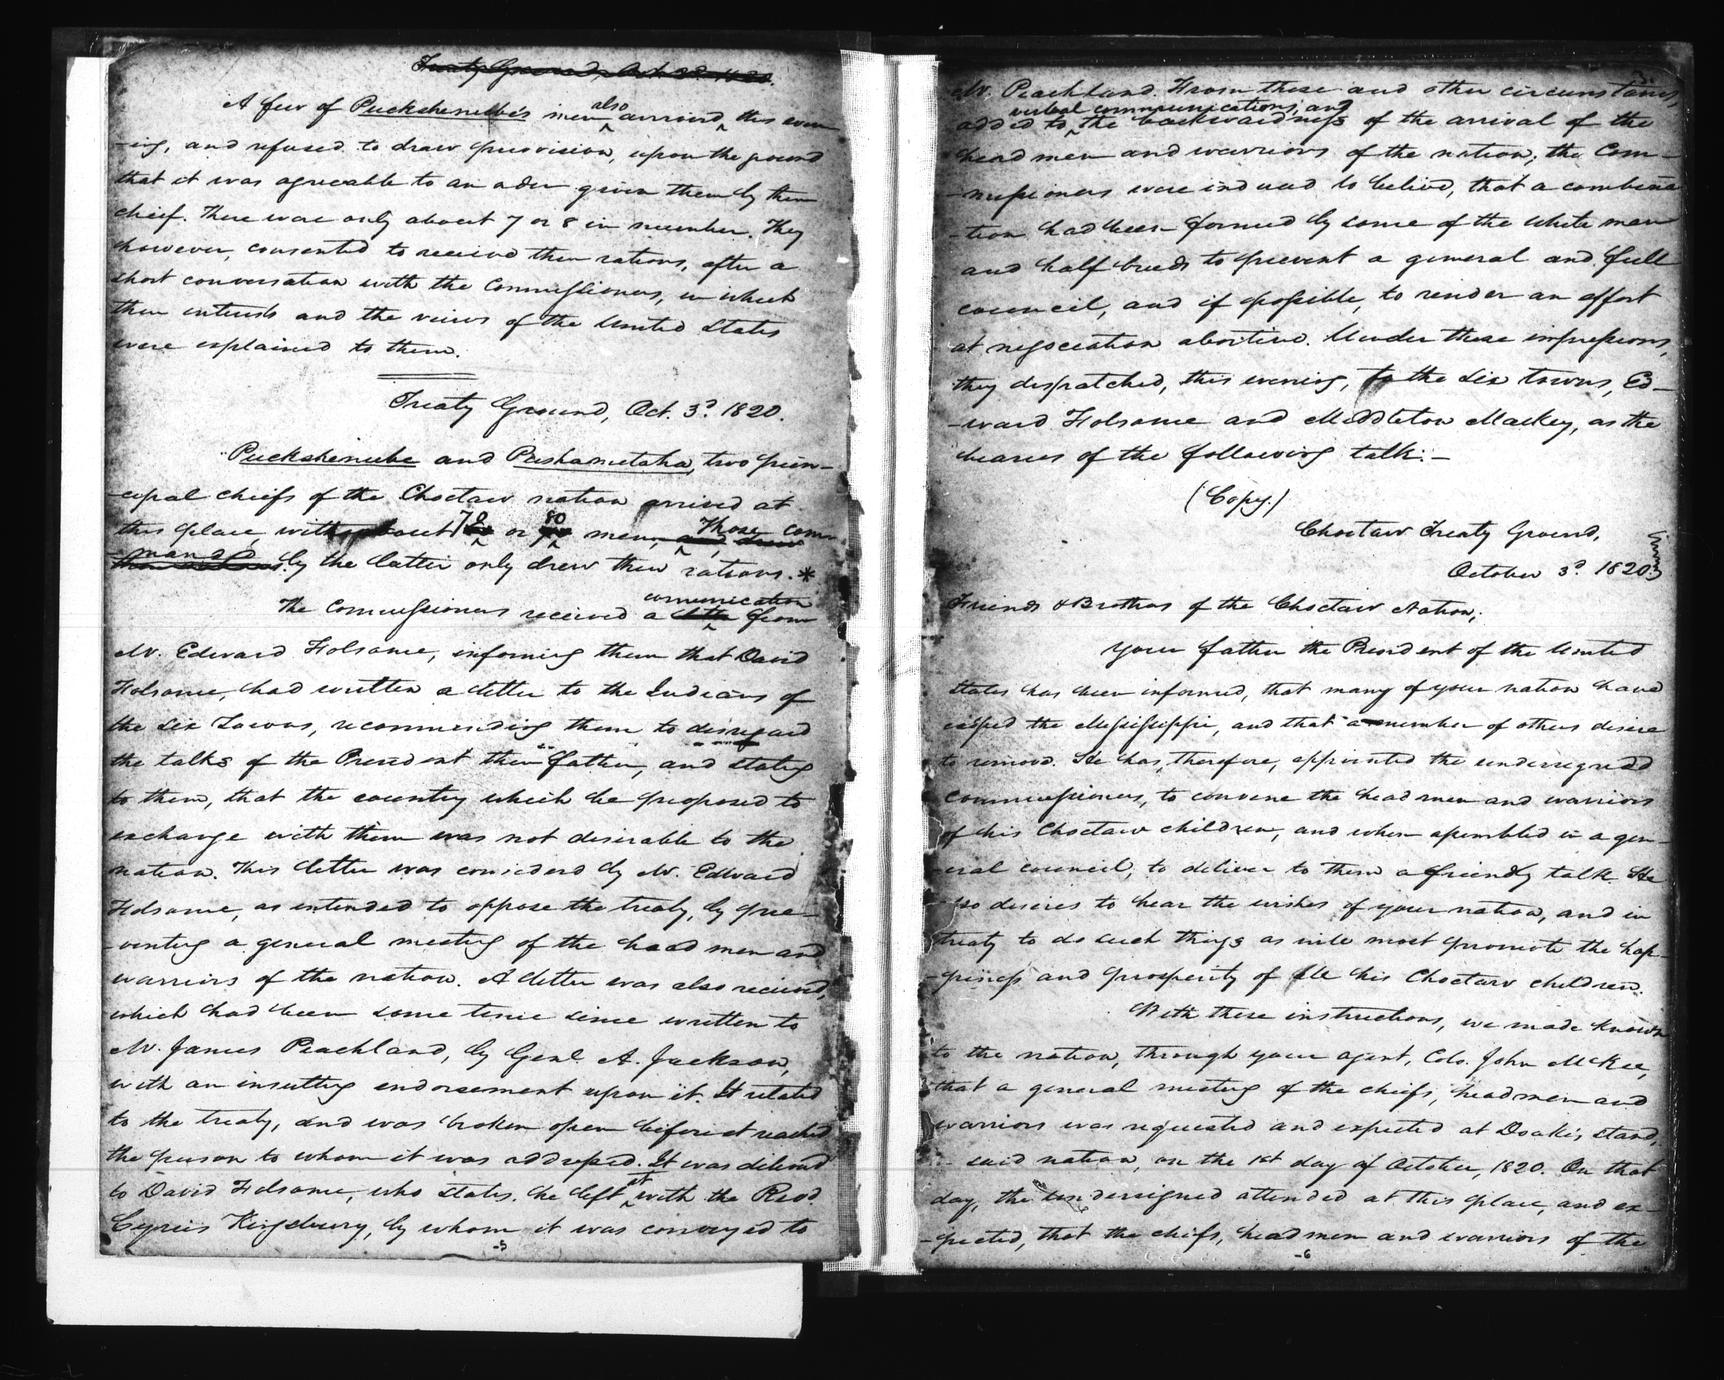 Treaty Ground, Oct. 2d. 1820.
A few of Puckshenubbe's men also arrived, this even-
-ing, and refused to draw provision, upon the ground
that it was agreeable to an order given them by their
chief. There were only about 7 or 8 in number. They
however, consented to receive their rations, after a
short conversation with the Commissioners, in which
their interests and the views of the United States
were explained to them.
Treaty Ground, Oct. 3d. 1820.
Puckshenube and Pushamutaha, two prin-
-cipal chiefs of the Choctaw nation arrived at
this place, with about 70 or 80 men, Those com-
-manded by the latter only drew their rations. *
The Commissioners received a communication from
Mr. Edward Folsome, informing them that David
Folsome, had written a letter to the Indians of
the Six Towns, recommending them to disregard
the talks of the President their father, and stating
to them, that the country which he proposed to
exchange with them was not desirable to the
nation. This letter was considerd by Mr. Edward
Folsome, as intended to oppose the treaty, by pre-
-venting a general meeting of the head men and
warriors of the nation. A letter was also received,
which had been some time since written to
Mr. James Peachland, by Genl. A. Jackson,
with an insulting endorsement upon it. It related
to the treaty, and was broken open before it reached
the person to whom it was addressed. It was delivered
to David Folsome, who states, he left it with the Revd.
Cyrus Kingsbury, by whom it was conveyed to
-5
Mr. Peachland. From these and other circumstances,
added to verbal communications, and the backwardness of the arrival of the
head men and warriors of the nation, the Com-
-missioners were induced to believe, that a combina-
-tion had been formed by some of the white men
and half breeds to prevent a general and full
council, and if possible, to render an effort
at negociation abortive. Under these impressions,
they dispatched, this evening, to the six towns, Ed-
-ward Folsome and Middleton Mackey, as the
bearers of the following talk:-
(Copy.)
Choctaw Treaty Ground,
October 3d. 1820
Friends & Brothers of the Choctaw Nation;
Your father the President of the United
States has been informed, that many of your nation have
crossed the Mississippi, and that a number of others desire
to remove. He has, therefore, appointed the undersigned
commissioners, to convene the head men and warriors
of his Choctaw children, and when assembled in a gen-
-eral council, to deliver to them a friendly talk. He
also desires to hear the wishes of your nation, and in
treaty to do such things as will most promote the hap-
-piness and prosperity of all his Choctaw children.
With these instructions, we made known
to the nation, through your agent, Colo. John McKee,
that a general meeting of the chiefs, head men and
warriors was requested and expected at Doake's stand,
said nation, on the 1st day of October, 1820. On that
day, the undersigned attended at this place, and ex-
-pected, that the chiefs, head men and warriors of the
-6